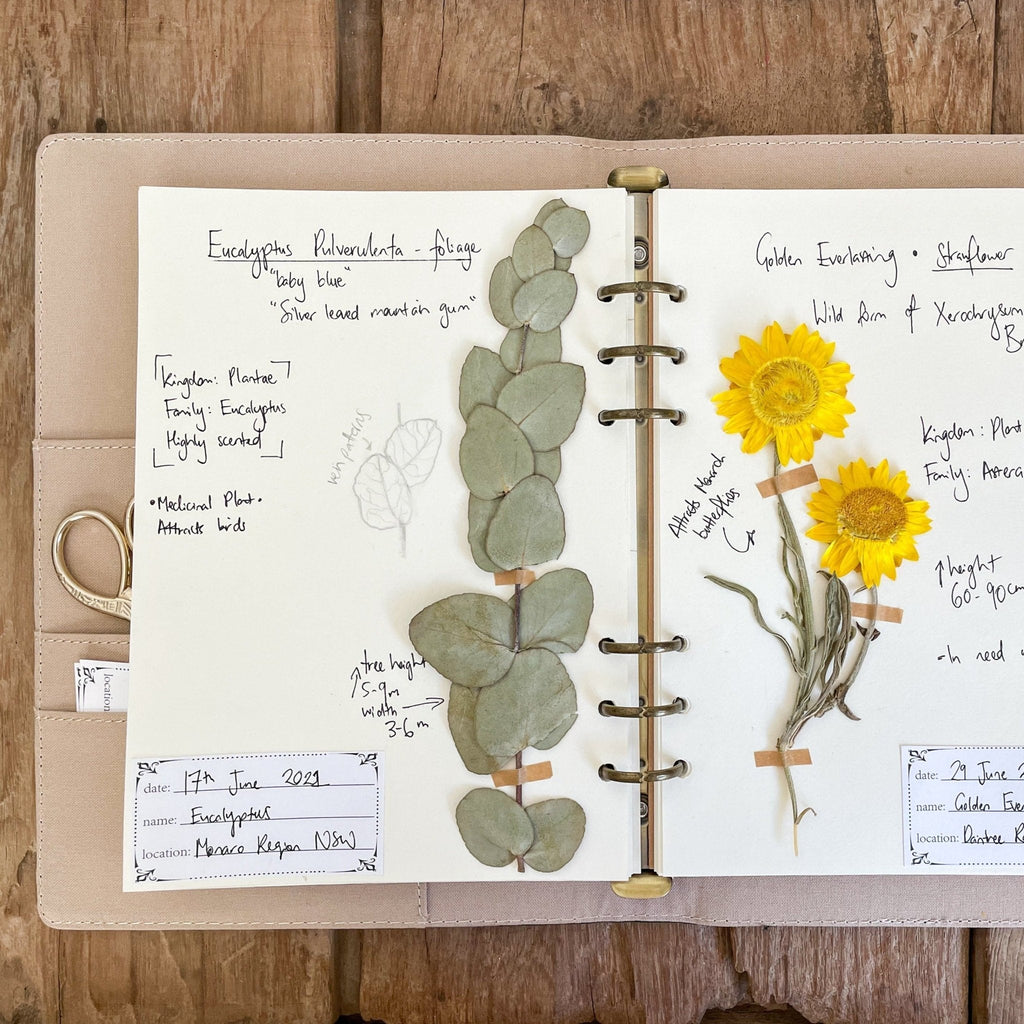 Eucalyptus Pulverulenta - foliage
"baby blue"
"Silver leaved mountain gum"
Kingdom: Plantae
Family: Eucalyptus
Highly scented
•Medicinal Plant•
Attracts birds
vein patterns
↑ tree height
5-9m
width →
3-6m
date: 17th June 2021
name: Eucalyptus
location: Monaro Region NSW
location
Golden Everlasting • Strawflower
Wild form of Xerochrysum
Br
Attracts Monarch
butterflies
Kingdom: Plant
Family: Astera
↑ height
60-90cm
-In need
date: 29 June 2
name: Golden Ever
location: Daintree R